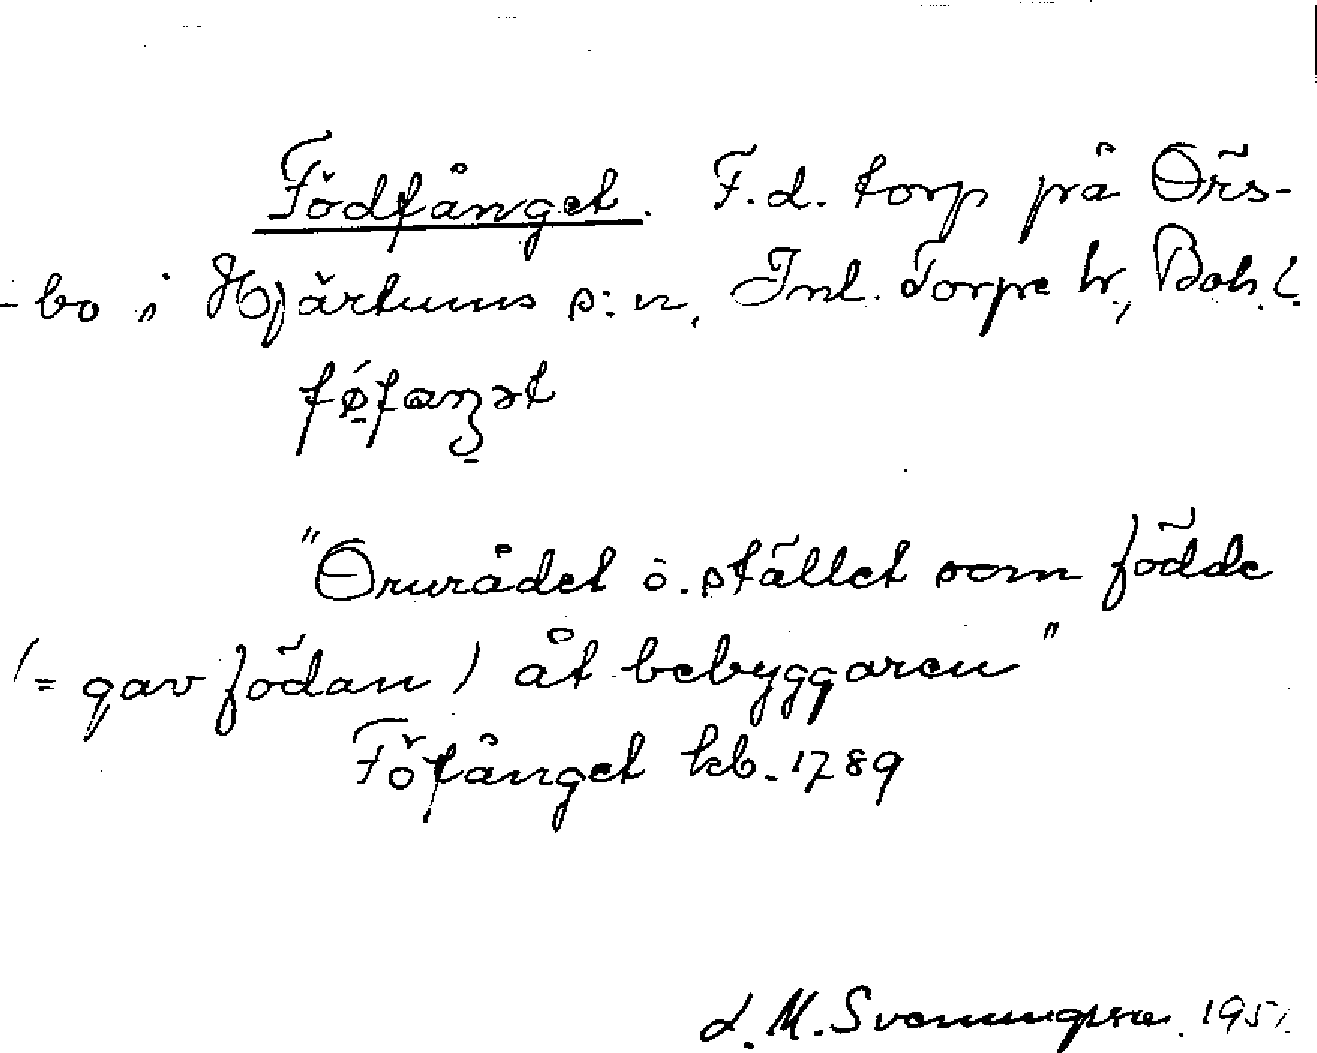 Födfånget. F.d. torp på Örs-
-bo i Hjärtums s:n, Inl. Torpe hr, Boh.l.
fǿ̱faŋət
"Området o. stället som födde
(= gav födan) åt bebyggaren"
Föfånget kb. 1789
d. M. Svenungsson. 1951.